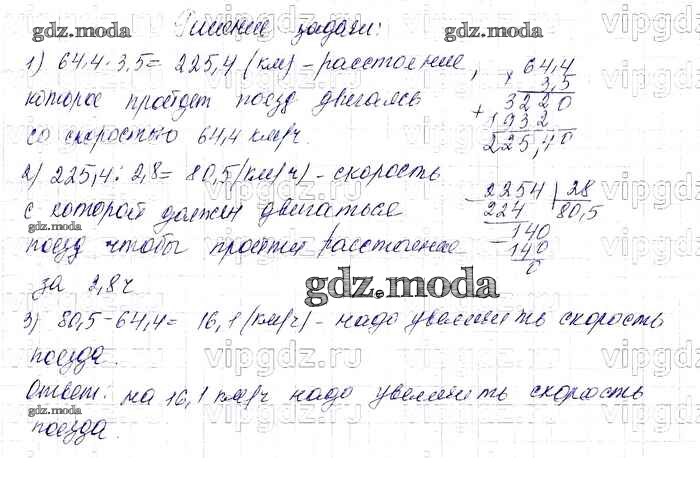 Решение задачи:
1) 64,4 · 3,5 = 225,4 (км) - расстояние,
которое пройдет поезд двигаясь
со скоростью 64,4 км/ч.
2) 225,4 : 2,8 = 80,5 (км/ч) - скорость
с которой должен двигаться
поезд чтобы пройти расстояние
за 2,8 ч
3) 80,5 - 64,4 = 16,1 (км/ч) - надо увеличить скорость
поезда.
Ответ: на 16,1 км/ч надо увеличить скорость
поезда.
× 64,4
3,5
+ 3220
1932
225,40
- 2254 | 28
224 80,5
- 140
140
0
gdz.moda
gdz.moda
gdz.moda
gdz.moda
gdz.moda
gdz.moda
vipgdz.ru
vipgdz.ru
vipgdz.ru
vipgdz.ru